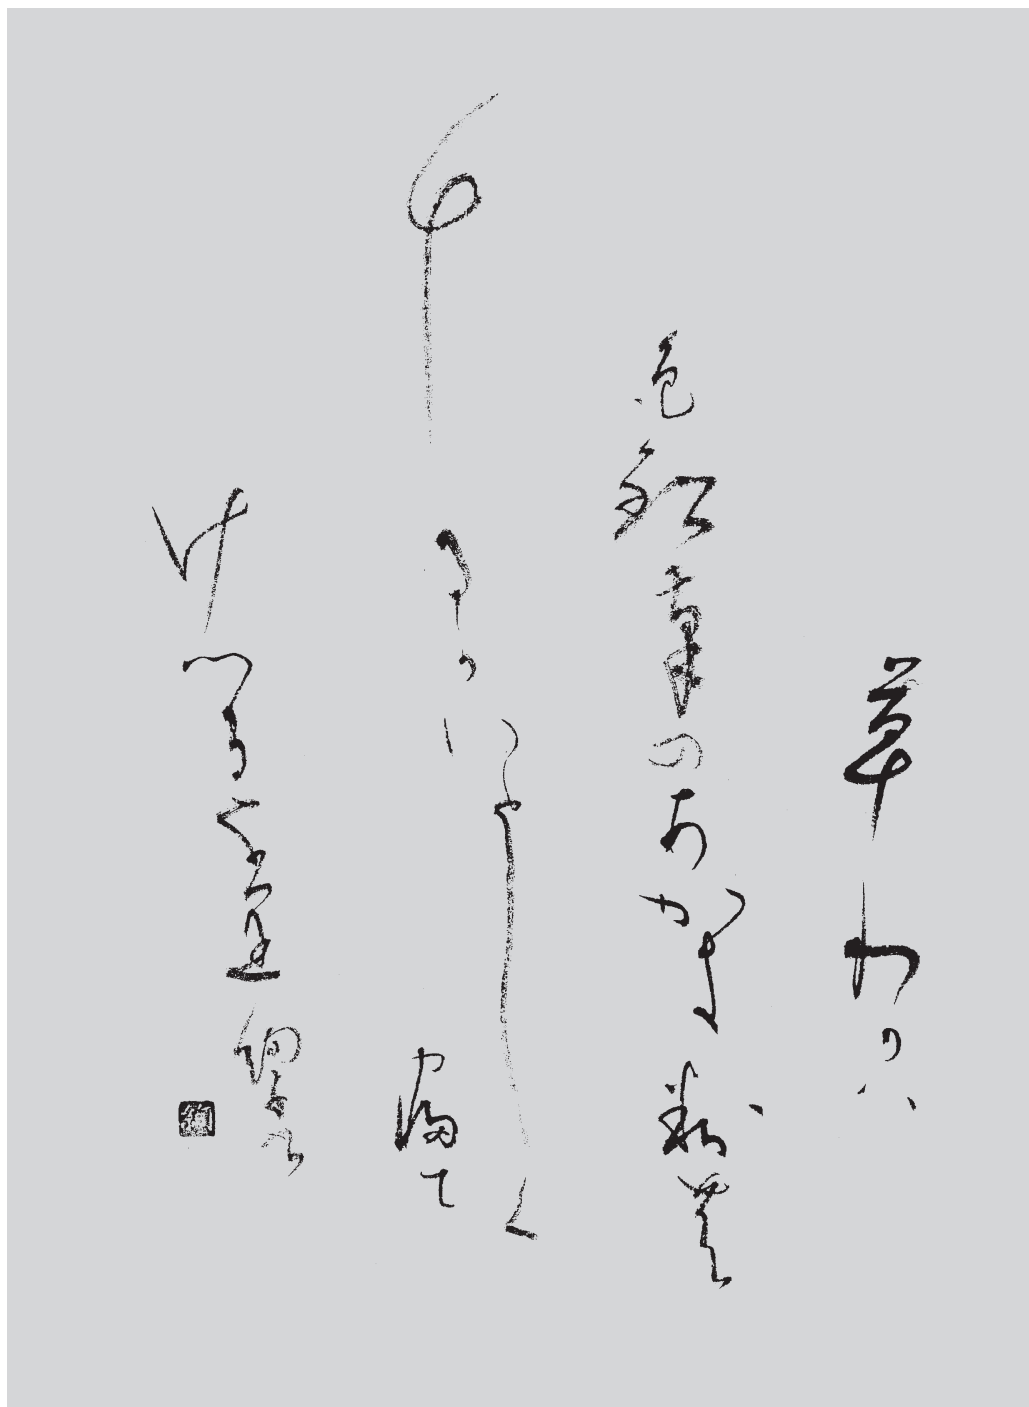 草わかハ
色鉛筆のあかき粉の
ちるかいとしく
寝て
けつるなり